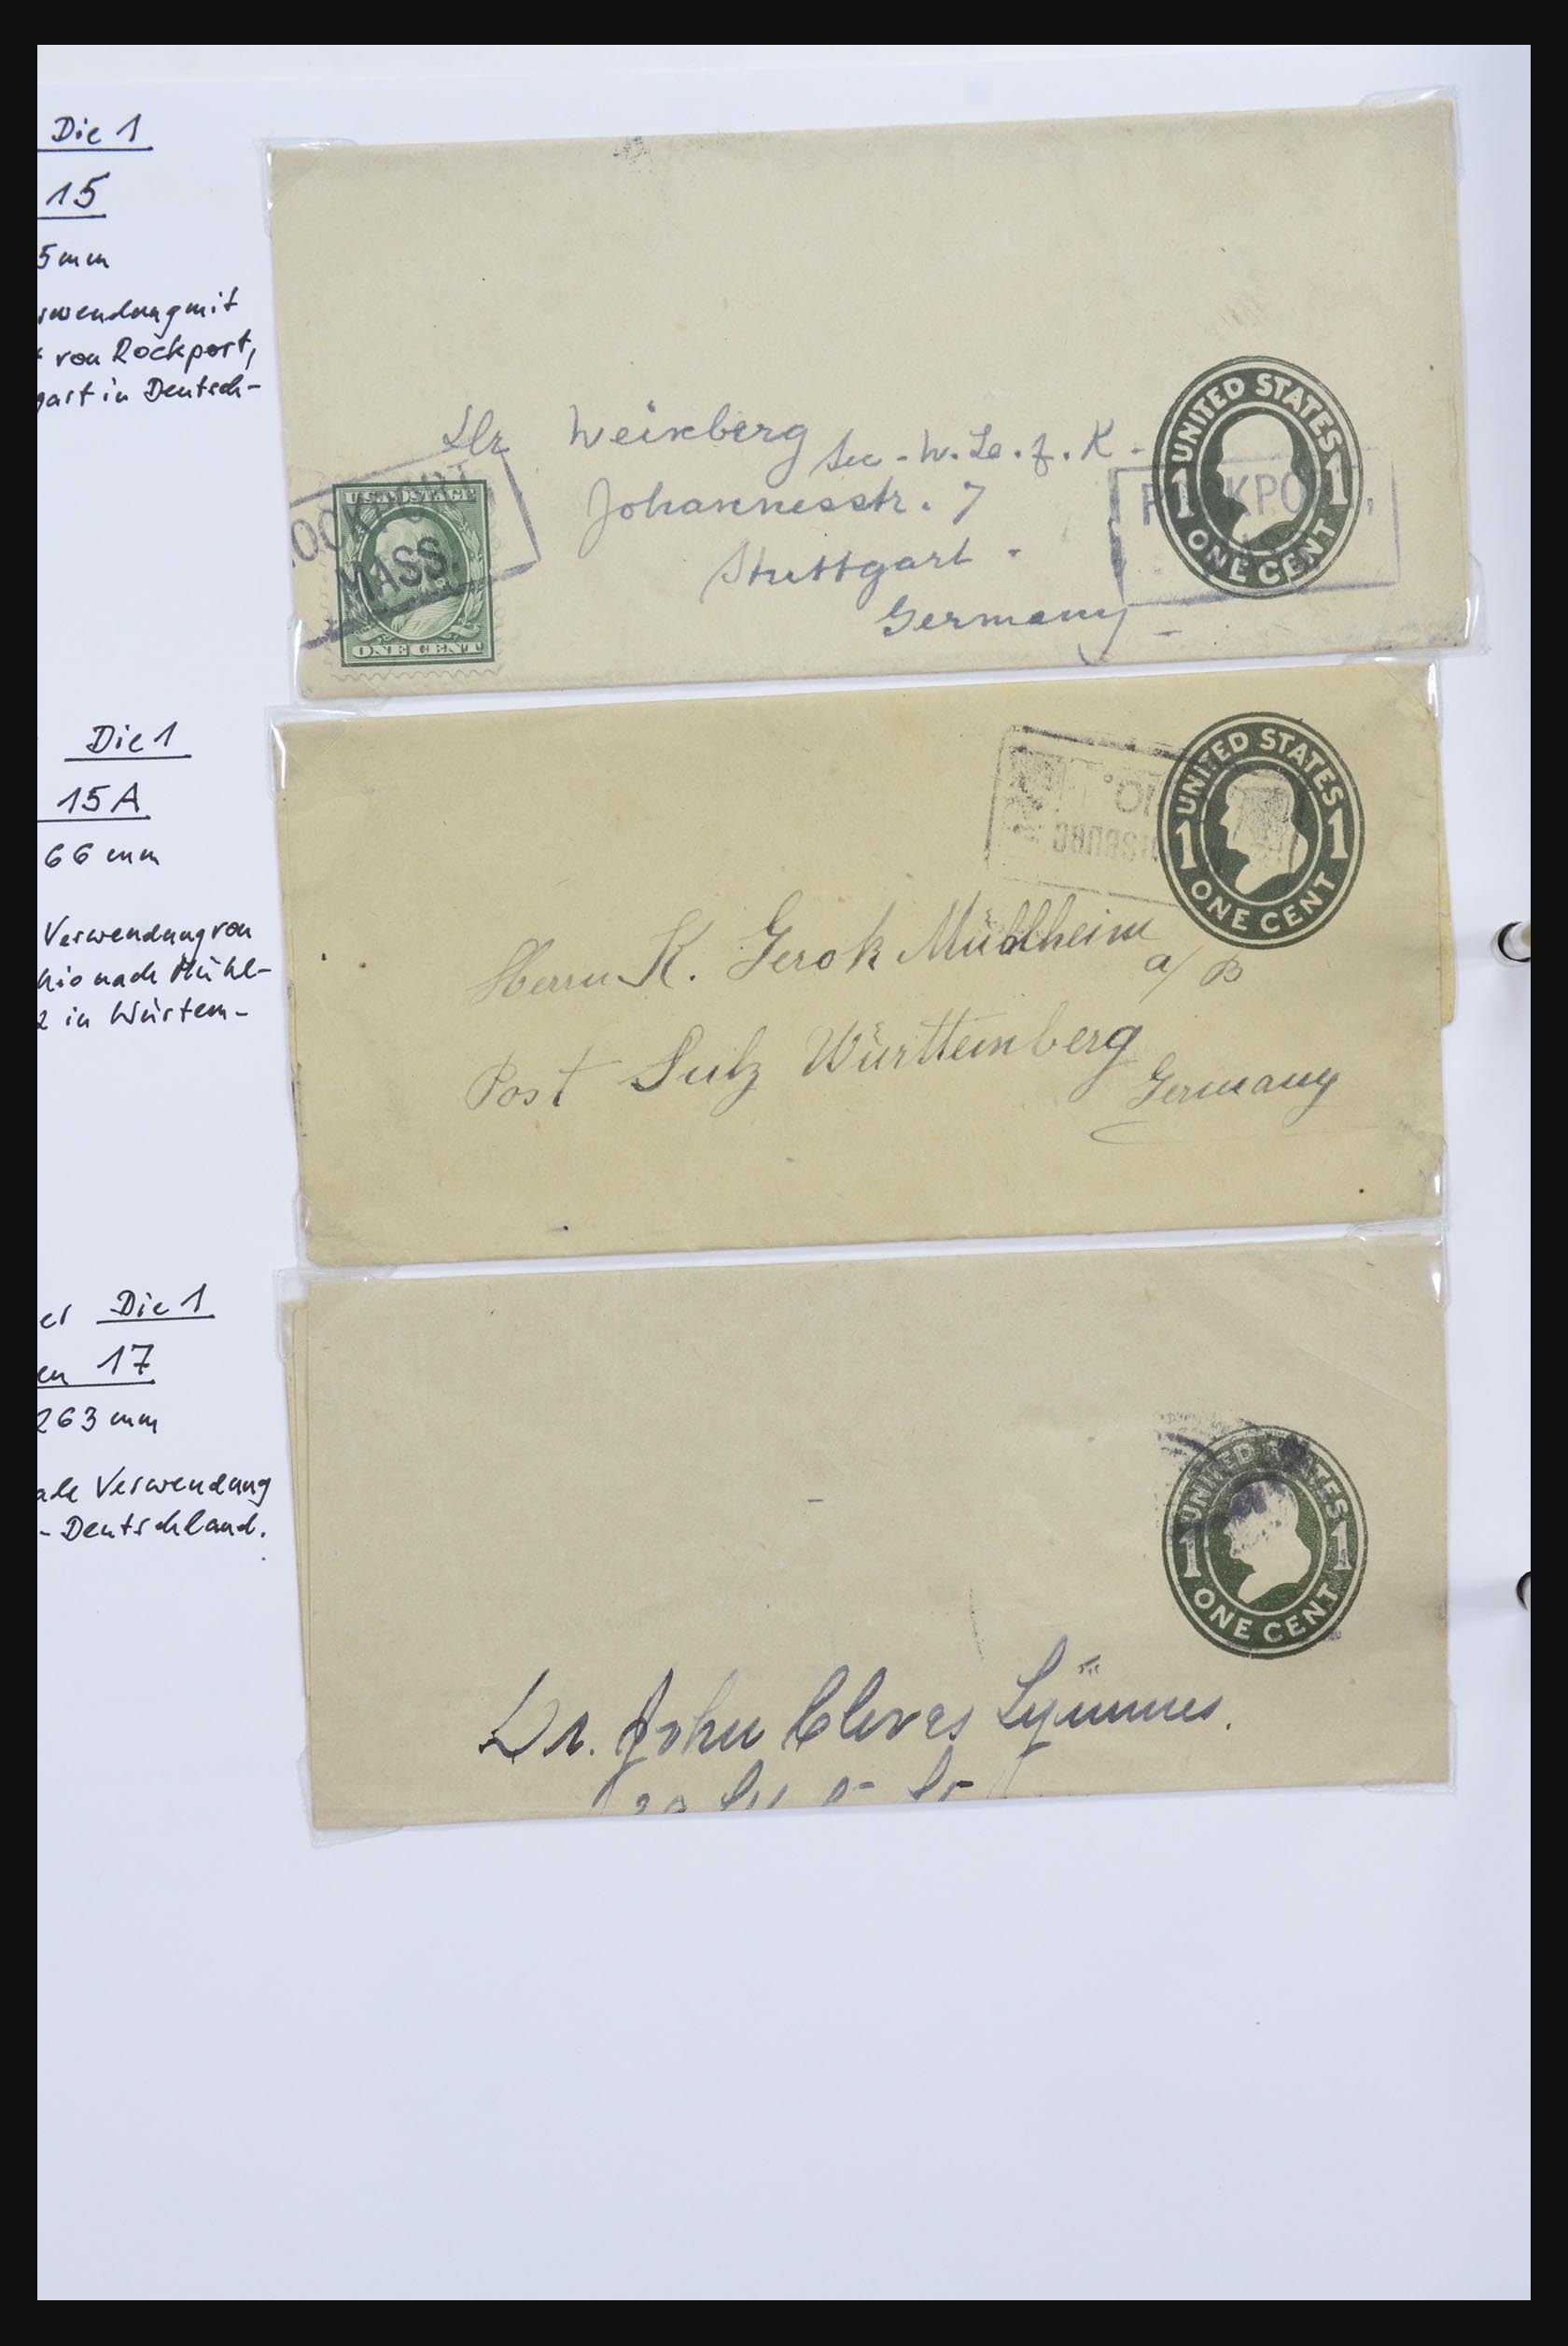 Die 1
15
5 mm
rwendung mit
von Rockport,
gart in Deutsch-
Weinberg
Johannesstr. 7
Stuttgart.
Germany
U.S. POSTAGE
ONE CENT
OCKPORT
MASS.
UNITED STATES
1 1
ONE CENT
Die 1
15 A
66 mm
Verwendung von
hio nach Mühl-
z in Würtem-
UNITED STATES
1 1
ONE CENT
Herrn K. Gerok Mühlheim
a/ B
Post Sulz Württemberg
Germany
er Die 1
en 17
263 mm
ale Verwendung
- Deutschland.
UNITED STATES
1 1
ONE CENT
Dr. John Cleves Symmes.